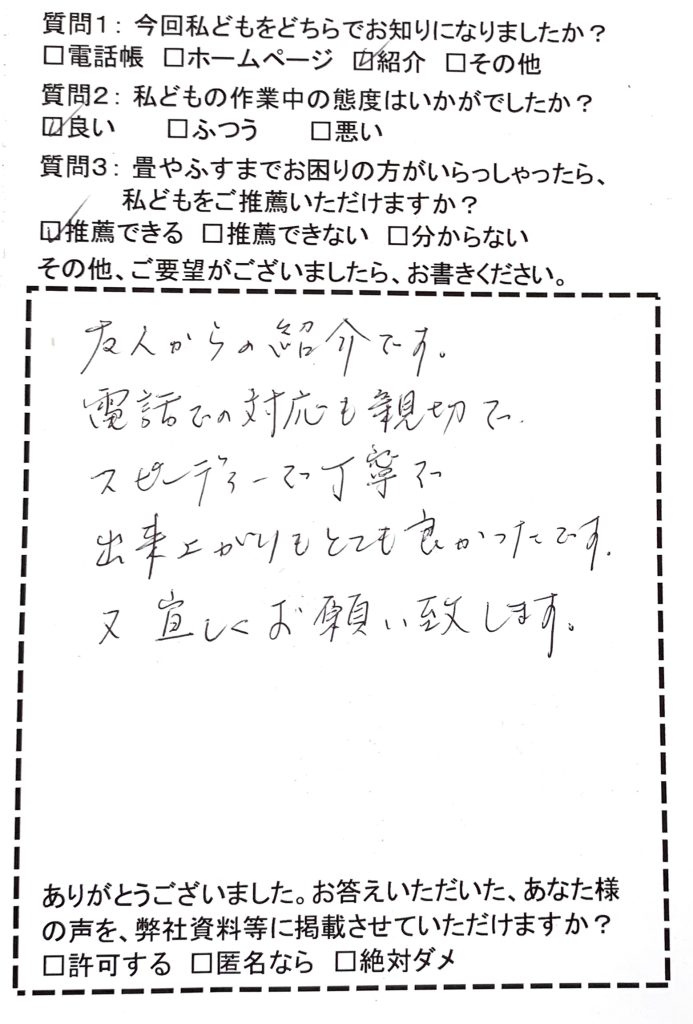 質問1：今回私どもをどちらでお知りになりましたか？
□電話帳 □ホームページ ☑紹介 □その他
質問2：私どもの作業中の態度はいかがでしたか？
☑良い □ふつう □悪い
質問3：畳やふすまでお困りの方がいらっしゃったら、
私どもをご推薦いただけますか？
☑推薦できる □推薦できない □分からない
その他、ご要望がございましたら、お書きください。
友人からの紹介です。
電話での対応も親切で、
スピーディーで丁寧で
出来上がりもとても良かったです。
又宜しくお願い致します。
ありがとうございました。お答えいただいた、あなた様
の声を、弊社資料等に掲載させていただけますか？
□許可する □匿名なら □絶対ダメ